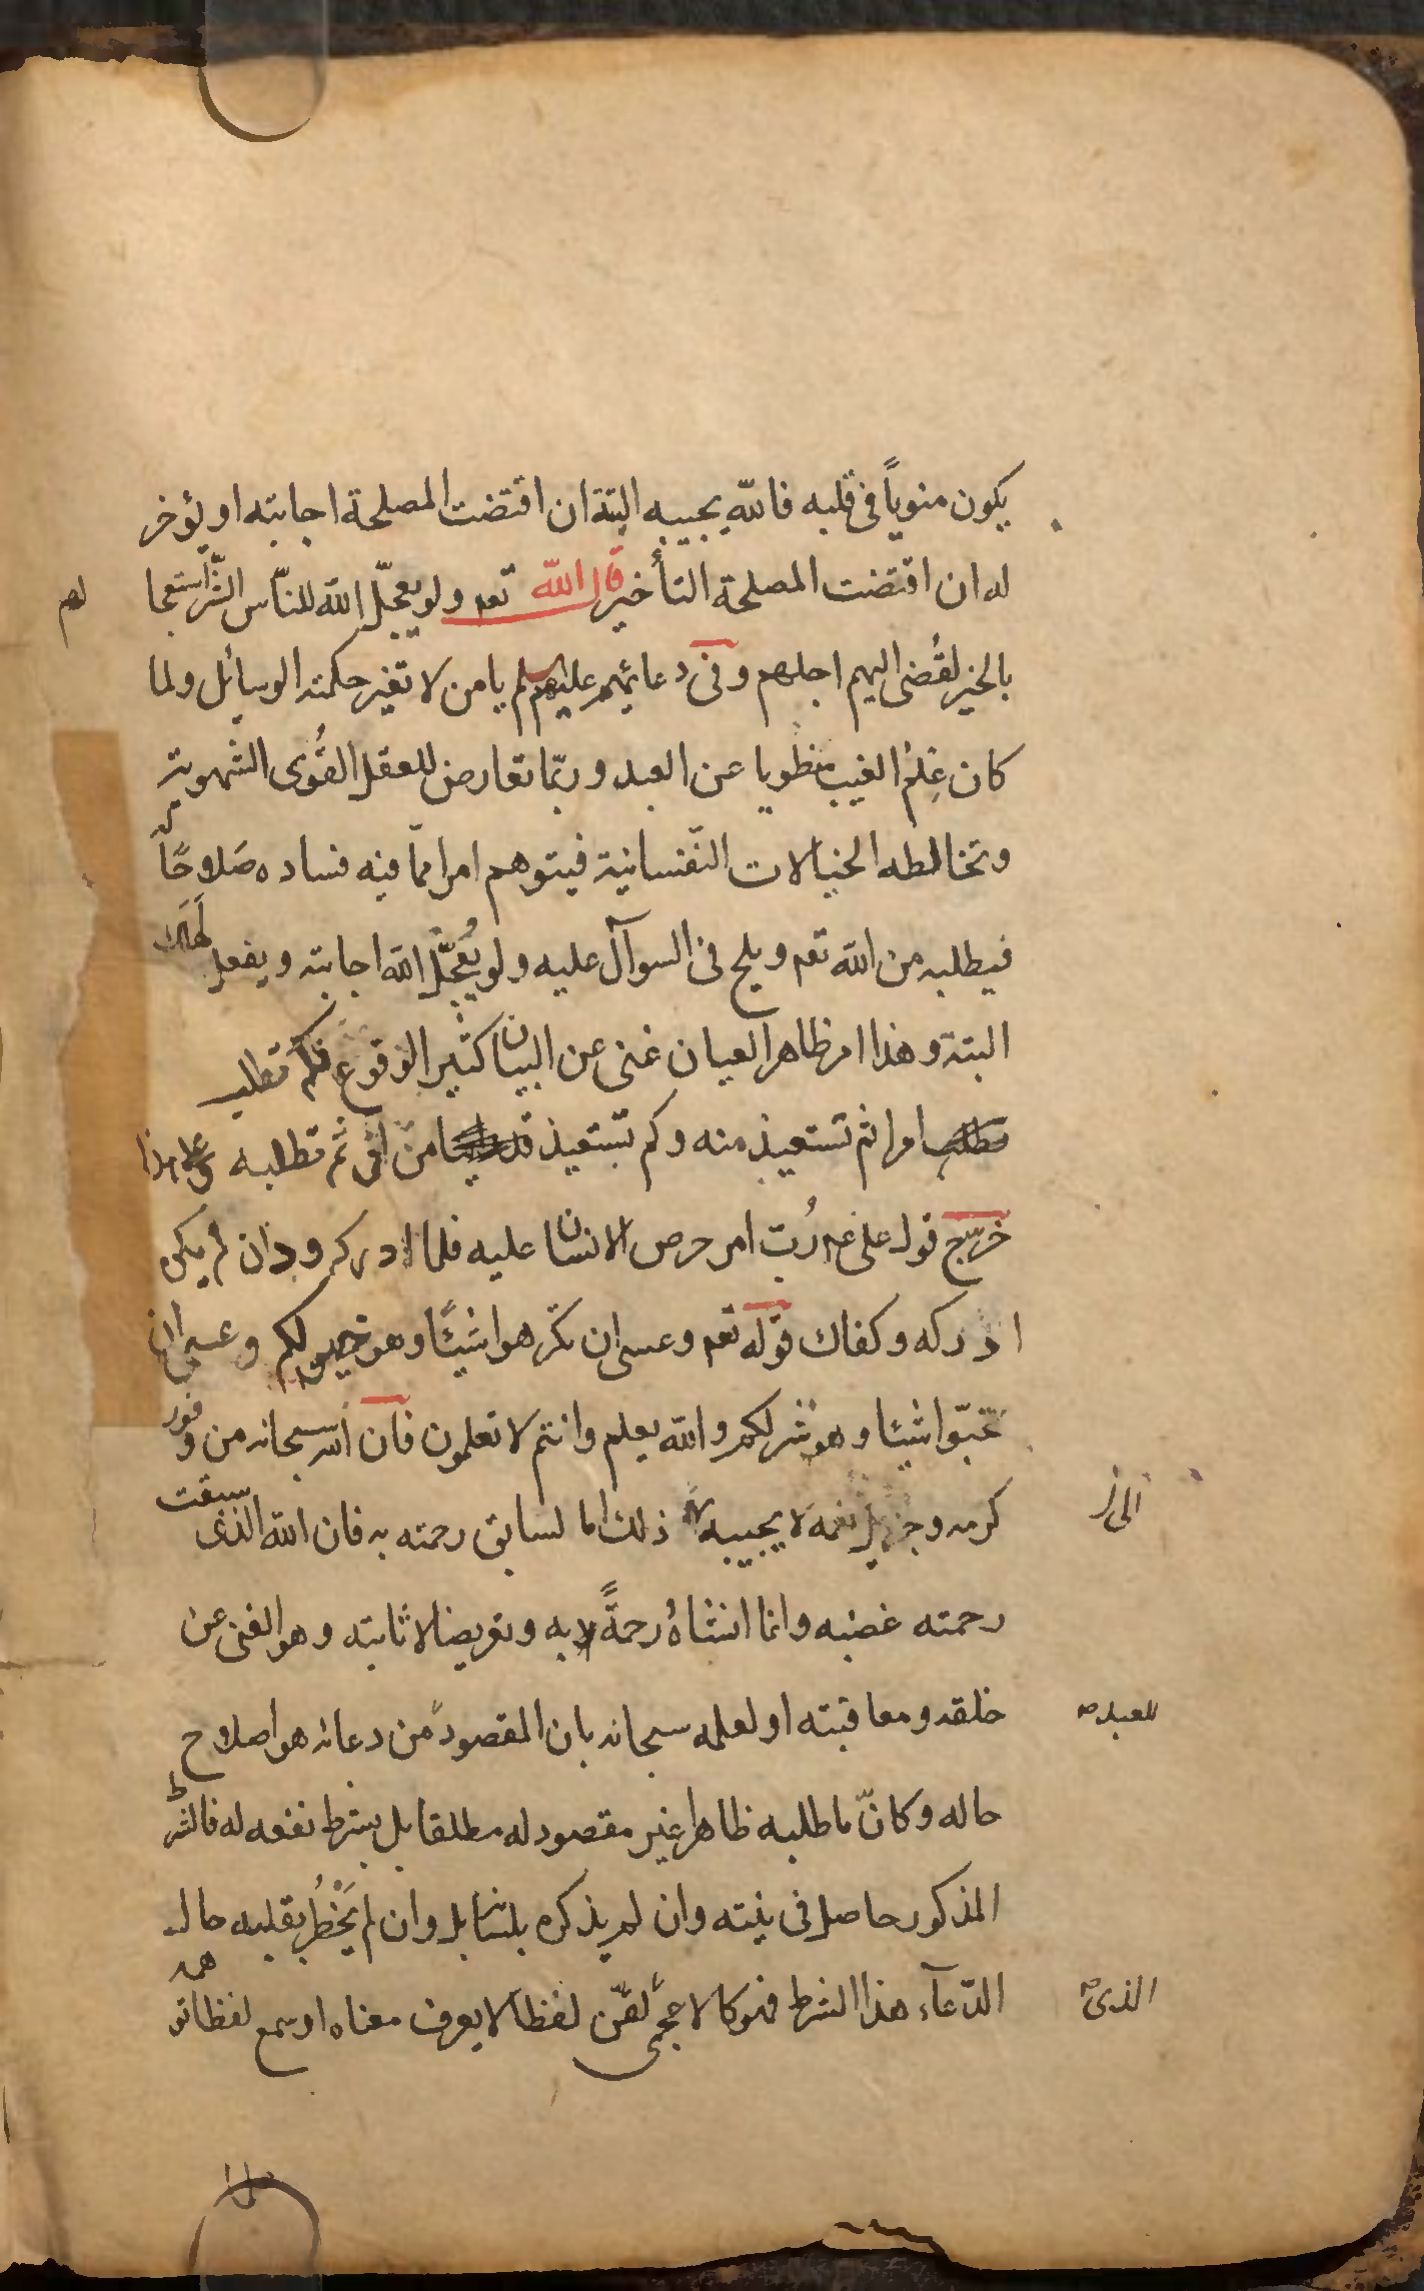 يكون منوياً في قلبه فالله يجيبه البتة ان اقتضت المصلحة اجابته او يؤخر
له ان اقتضت المصلحة التأخير قال الله تعم ولو يعجّل الله للنّاس الشّرّ استعجا
لهم
بالخير لقُضى اليهم اجلهم وفى دعائهم عليهم السلم يا من لا تغير حكمته الوسائل ولما
كان عِلمُ الغيب منطويا عن العبد وربّما تعارض للعقل القُوى الشهويته
وتخالطه الخيالات النّفسانية فيتوهم امرا ممّا فيه فساده صَلاحًا
فيطلبه من الله تعم ويلح فى السوآل عليه ولو يُعجّل الله اجابته ويفعل لهلك
البتة وهذا امر ظاهر العيان غنى عن البيان كثير الوقوع فكم تطلب
امرا ثم تستعيذ منه وكم تستعيذ من امر ثم تطلبه وعلى هذا
خرج قول على عم رُبّ امر حرص الانسان عليه فلما ادركه ود ان لم يكن
ادركه وكفاك قوله تعم وعسى ان تكرهوا شيئًا وهو خير لكم وعسى ان
تحبّوا شيئا وهو شر لكم والله يعلم وانتم لا تعلمون فان الله سبحانه من وفور
كرمه وجزيل نعمه لا يجيبه ذلك اما لسابق رحمته به فان الله الذى سبقت
الى
رحمته غضبه وانما انشاهُ رحمةً به وتعريضا لاثابته وهو الغنى عن
خلقه ومعاقبته او لعلمه سبحانه بان المقصود من دعائه هو اصلاح
للعبد
حاله وكانّ ما طلبه ظاهرا غير مقصود له مطلقا بل بشرط نفعه له فالشرط
المذكور حاصل فى نيته وان لم يذكره بلسانه بل وان لم يَخْطُر بقلبه حاله
الدّعآء هذا الشرط فهو كالاعجمى لقّن لفظا لا يعرف معناه او سمع لفظا
الذى